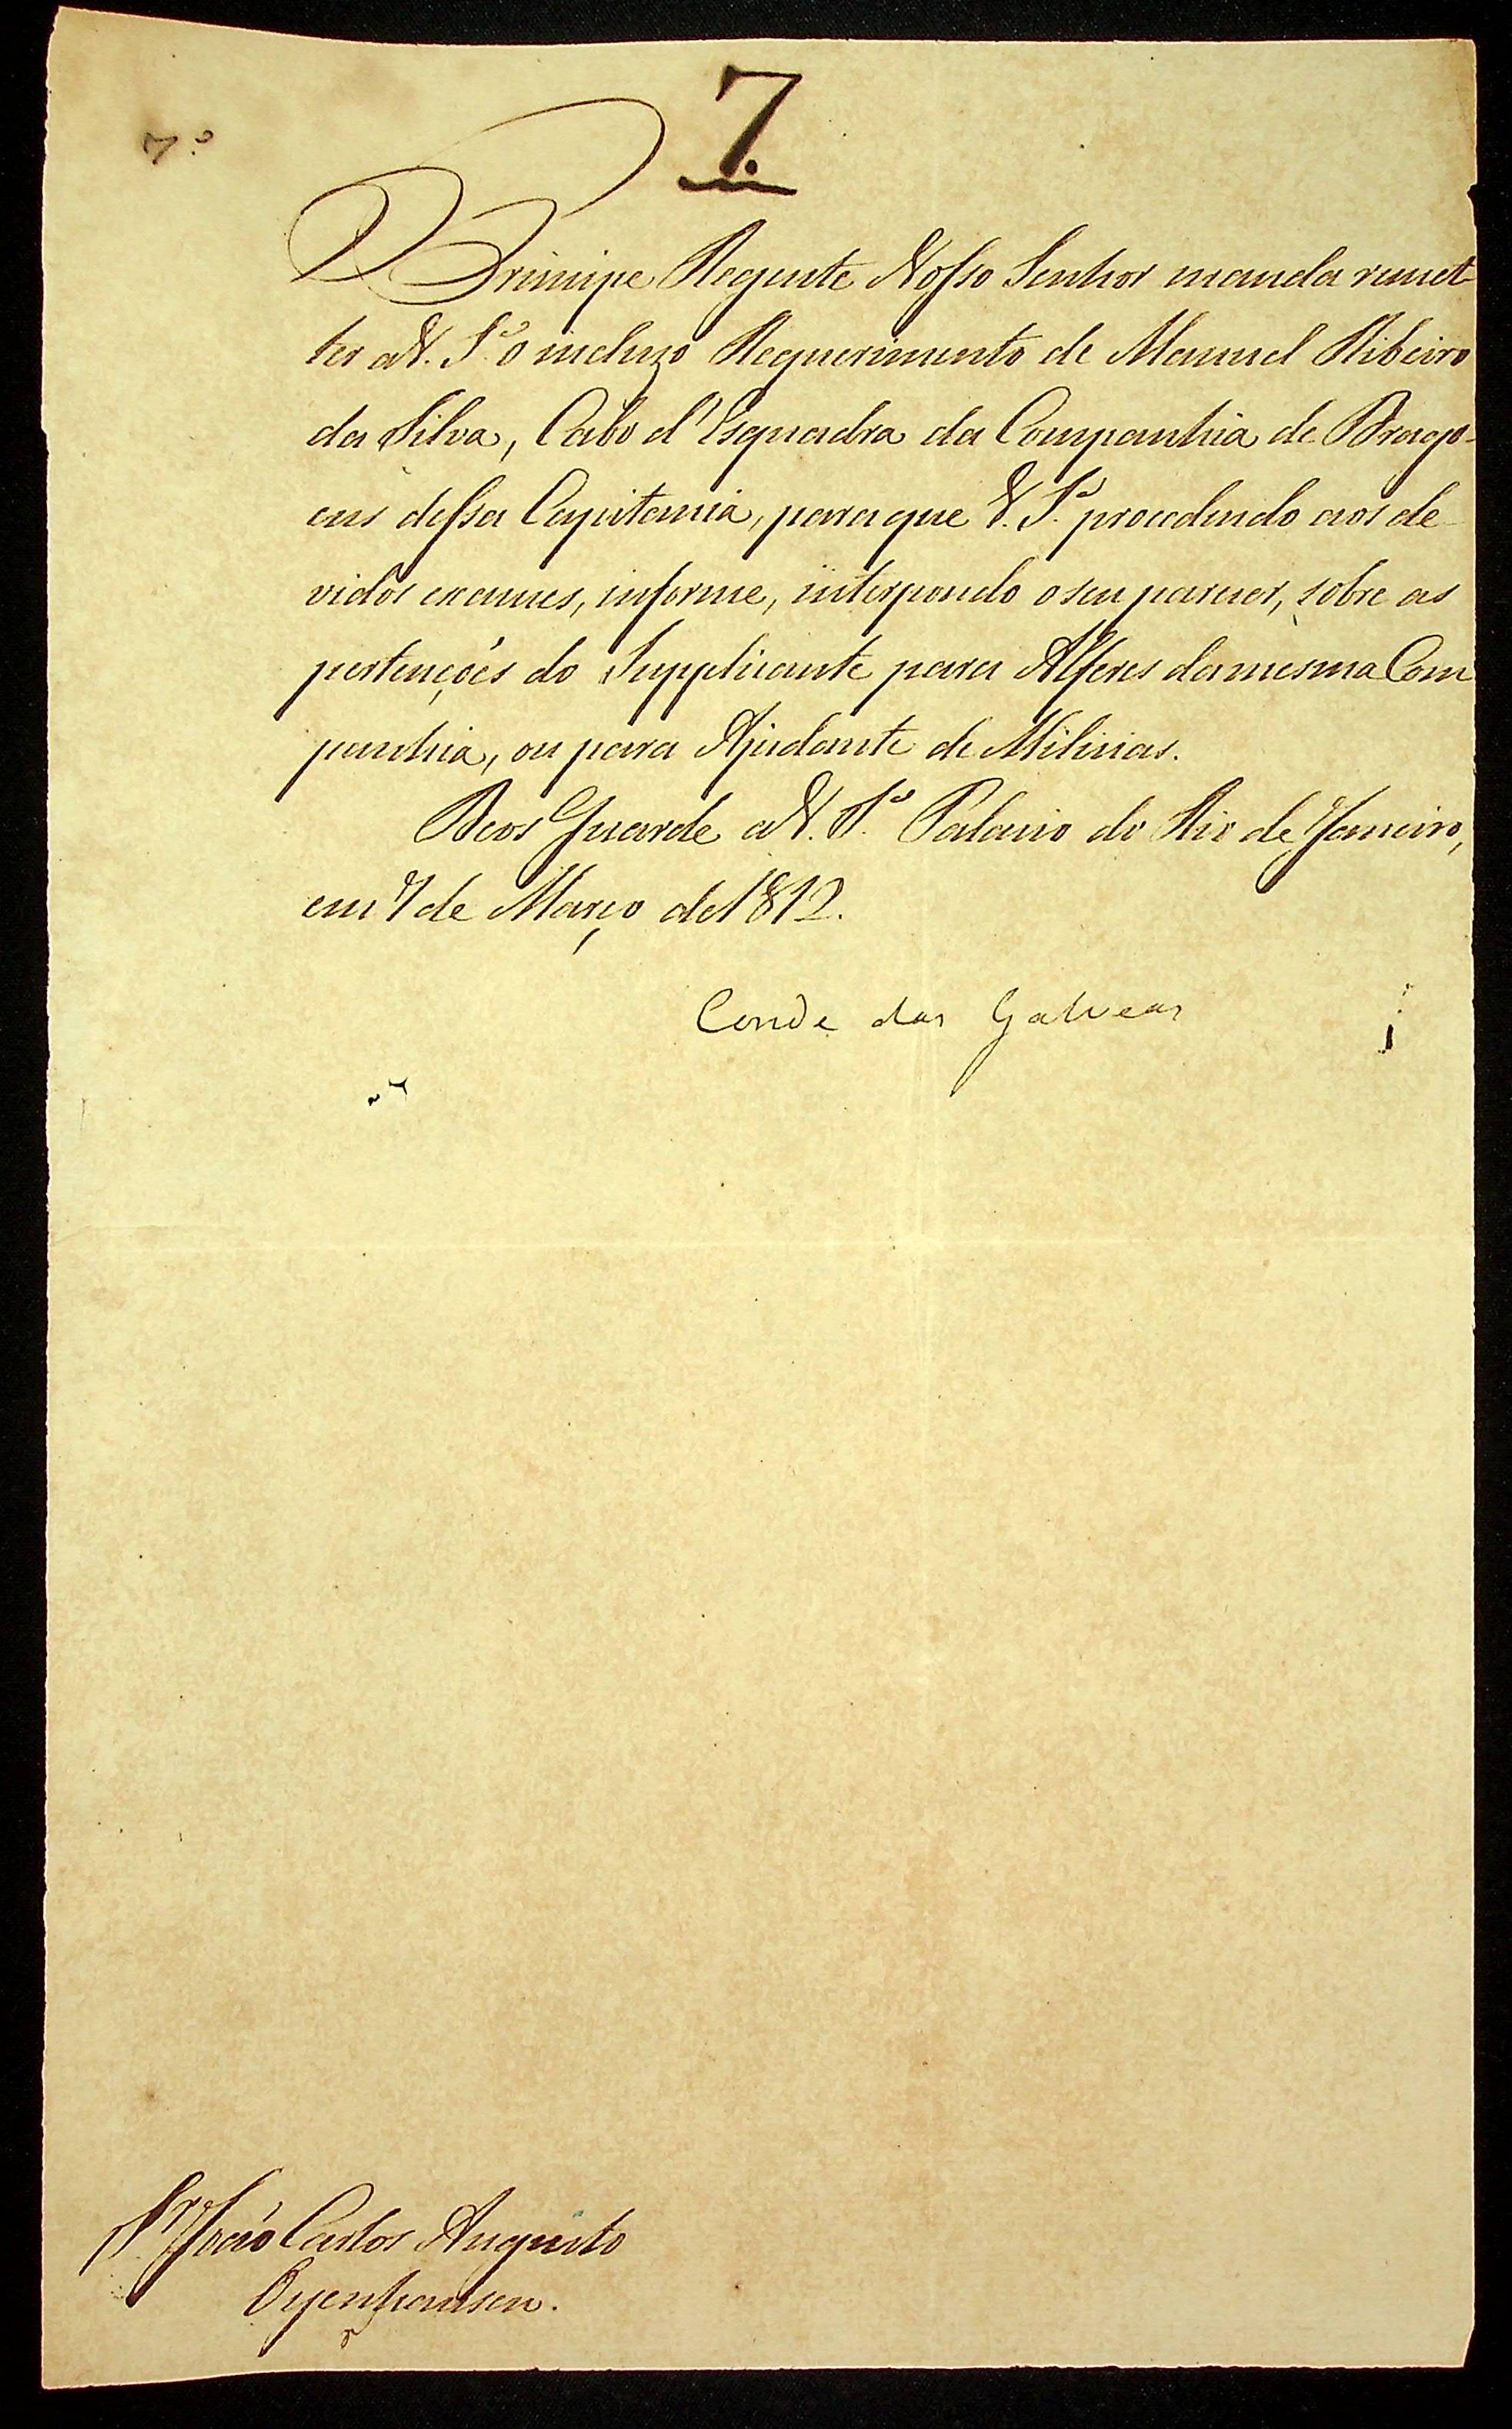 7.
7º
O Principe Regente Nosso Senhor manda remet-
ter a V. Sª o incluzo Requerimento de Manuel Ribeiro
da Silva, Cabo d'Esquadra da Companhia de Drago-
ens dessa Capitania, para que V. Sª procedendo aos de-
vidos exames, informe, interpondo o seu parecer, sobre as
pertenções do Supplicante para Alferes da mesma Com
panhia, ou para Ajudante de Milicias.
Deos Guarde a V. Sª Palacio do Rio de Janeiro,
em 7 de Março de 1812.
Conde das Galveas
Sr João Carlos Augusto
Oyenhausen.